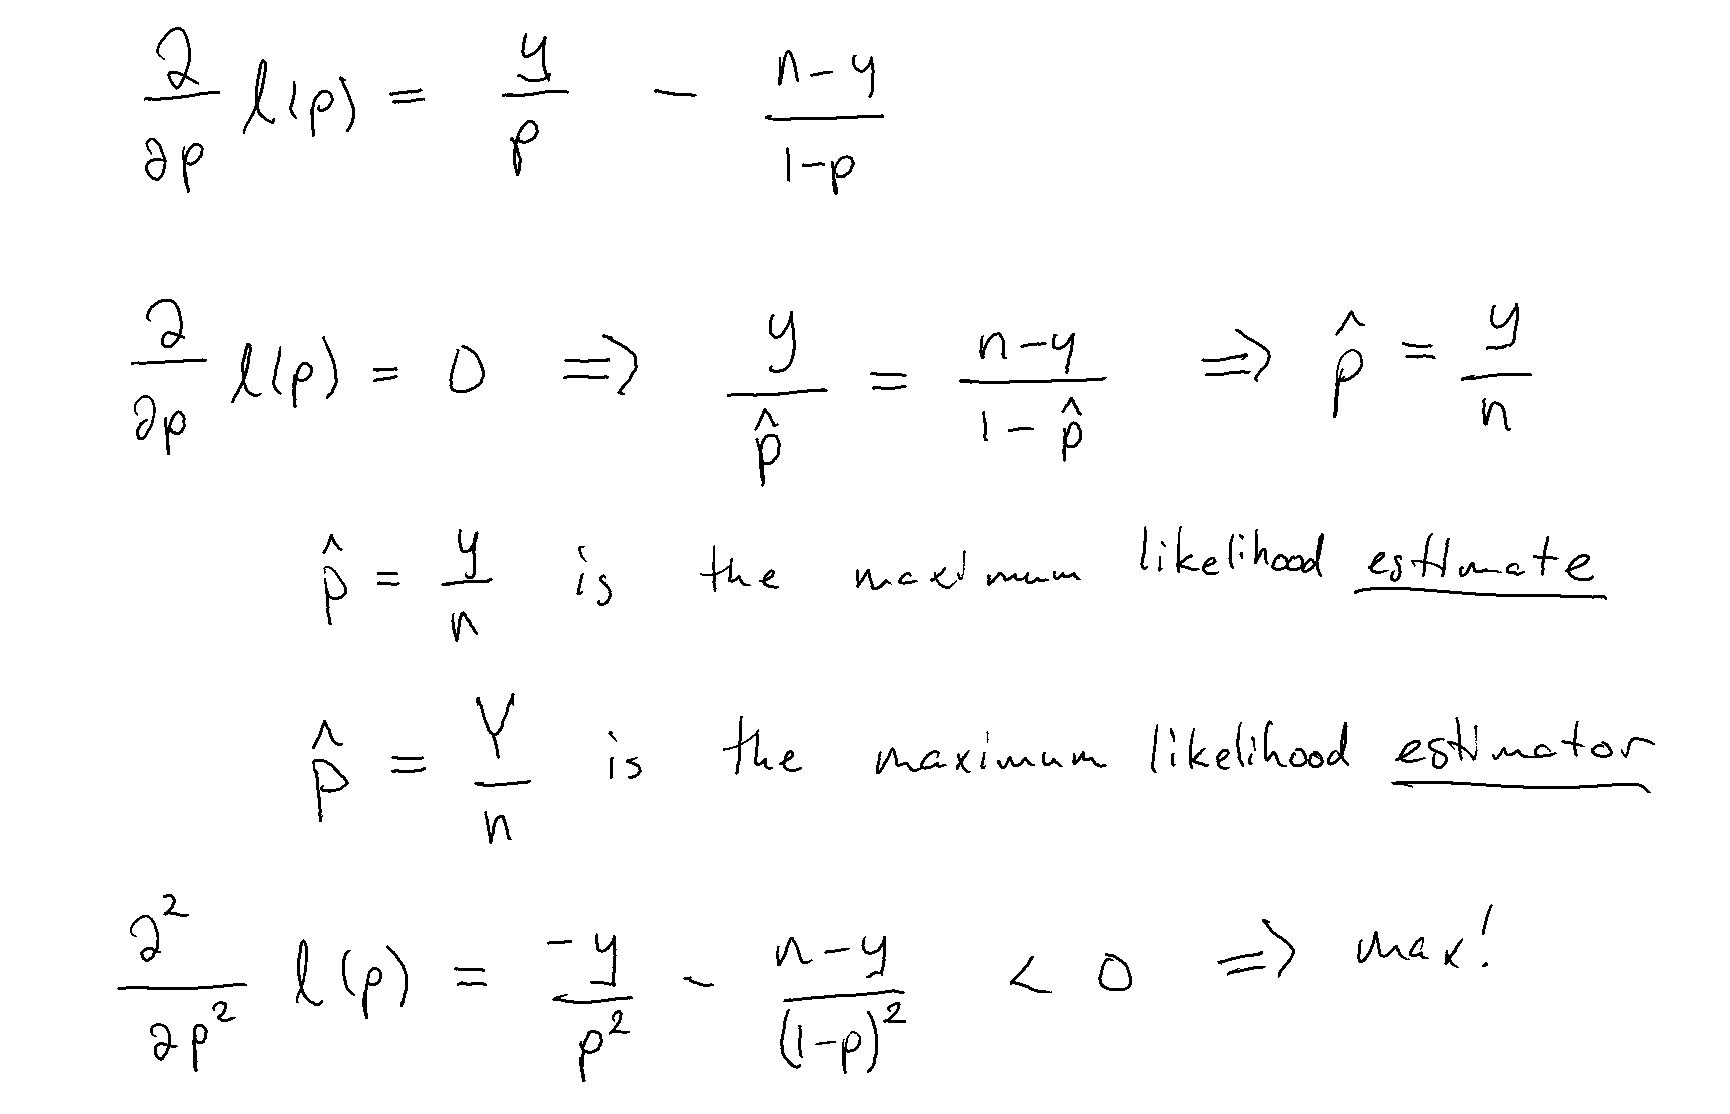 ∂/∂p l(p) = y/p - (n-y)/(1-p)
∂/∂p l(p) = 0 ⇒ y/p̂ = (n-y)/(1-p̂) ⇒ p̂ = y/n
p̂ = y/n is the maximum likelihood estimate
p̂ = Y/n is the maximum likelihood estimator
∂²/∂p² l(p) = -y/p² - (n-y)/(1-p)² < 0 ⇒ max!